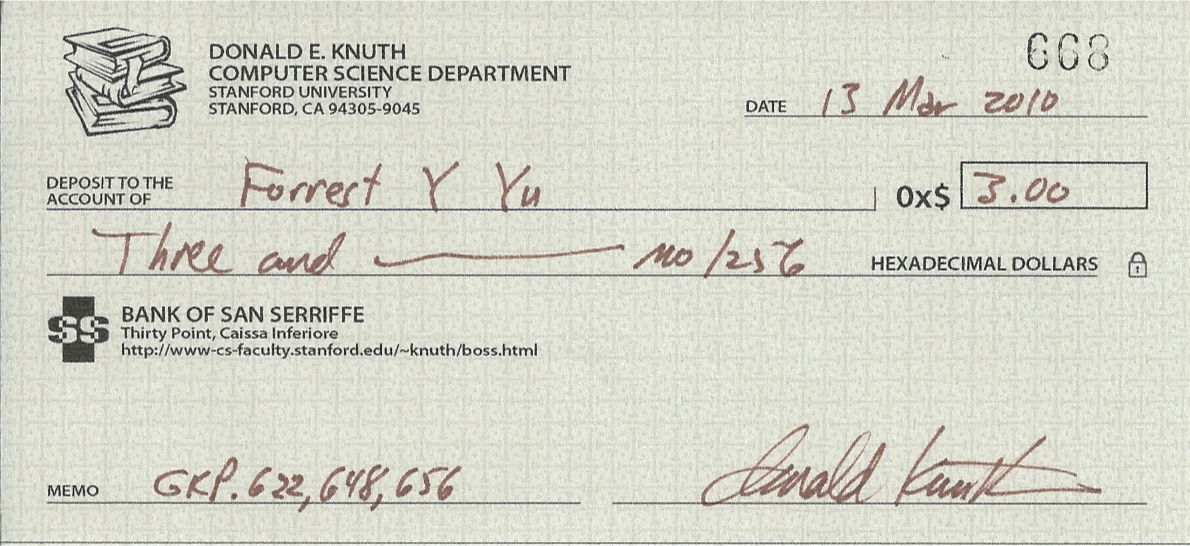 DONALD E. KNUTH
COMPUTER SCIENCE DEPARTMENT
STANFORD UNIVERSITY
STANFORD, CA 94305-9045
668
DATE 13 Mar 2010
DEPOSIT TO THE
ACCOUNT OF Forrest Y Yu 0x$ 3.00
Three and no/256 HEXADECIMAL DOLLARS
SS
BANK OF SAN SERRIFFE
Thirty Point, Caissa Inferiore
http://www-cs-faculty.stanford.edu/~knuth/boss.html
MEMO GKP.622,648,656
Donald Knuth